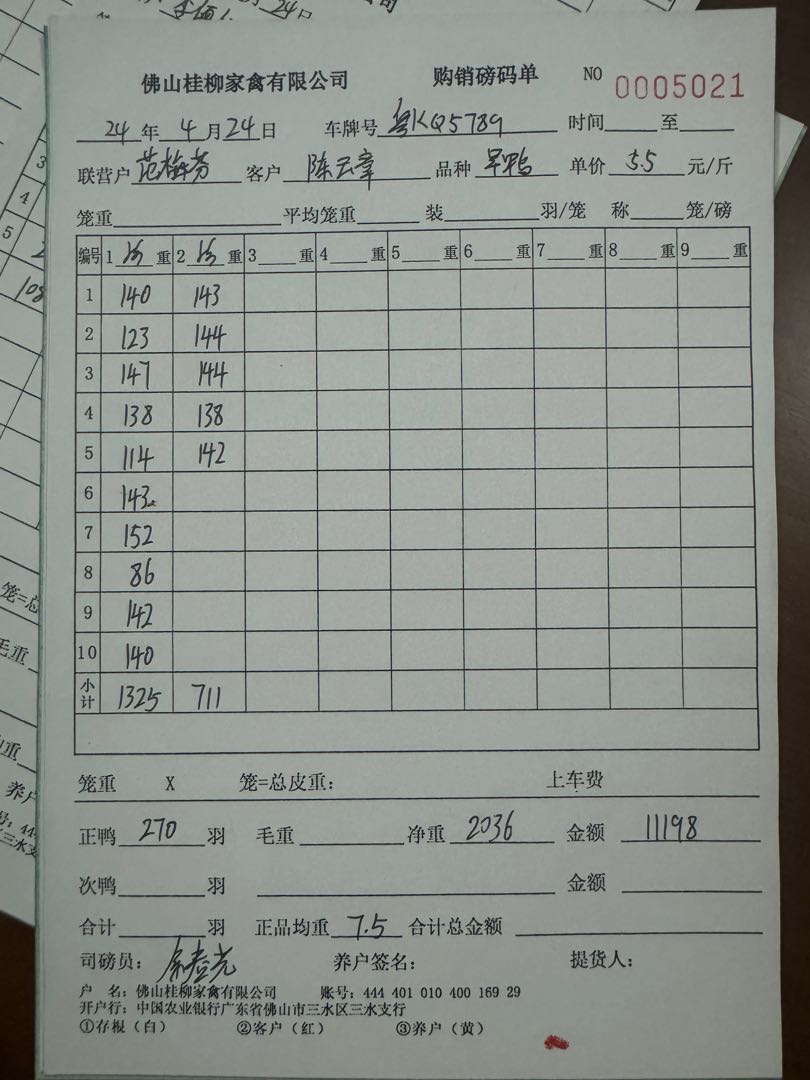 佛山桂柳家禽有限公司 购销磅码单 NO 0005021
24年4月24日 车牌号 粤KQ5789 时间 至
联营户 范梅芬 客户 陈云章 品种 旱鸭 单价 5.5 元/斤
笼重 平均笼重 装 羽/笼 称 笼/磅
编号 1 重 2 重 3 重 4 重 5 重 6 重 7 重 8 重 9 重
1 140 143
2 123 144
3 147 144
4 138 138
5 114 142
6 143
7 152
8 86
9 142
10 140
小计 1325 711
笼重 X 笼=总皮重: 上车费
正鸭 270 羽 毛重 净重 2036 金额 11198
次鸭 羽 金额
合计 羽 正品均重 7.5 合计总金额
司磅员: 养户签名: 提货人:
户 名: 佛山桂柳家禽有限公司 账号: 444 401 010 400 169 29
开户行: 中国农业银行广东省佛山市三水区三水支行
①存根(白) ②客户(红) ③养户(黄)